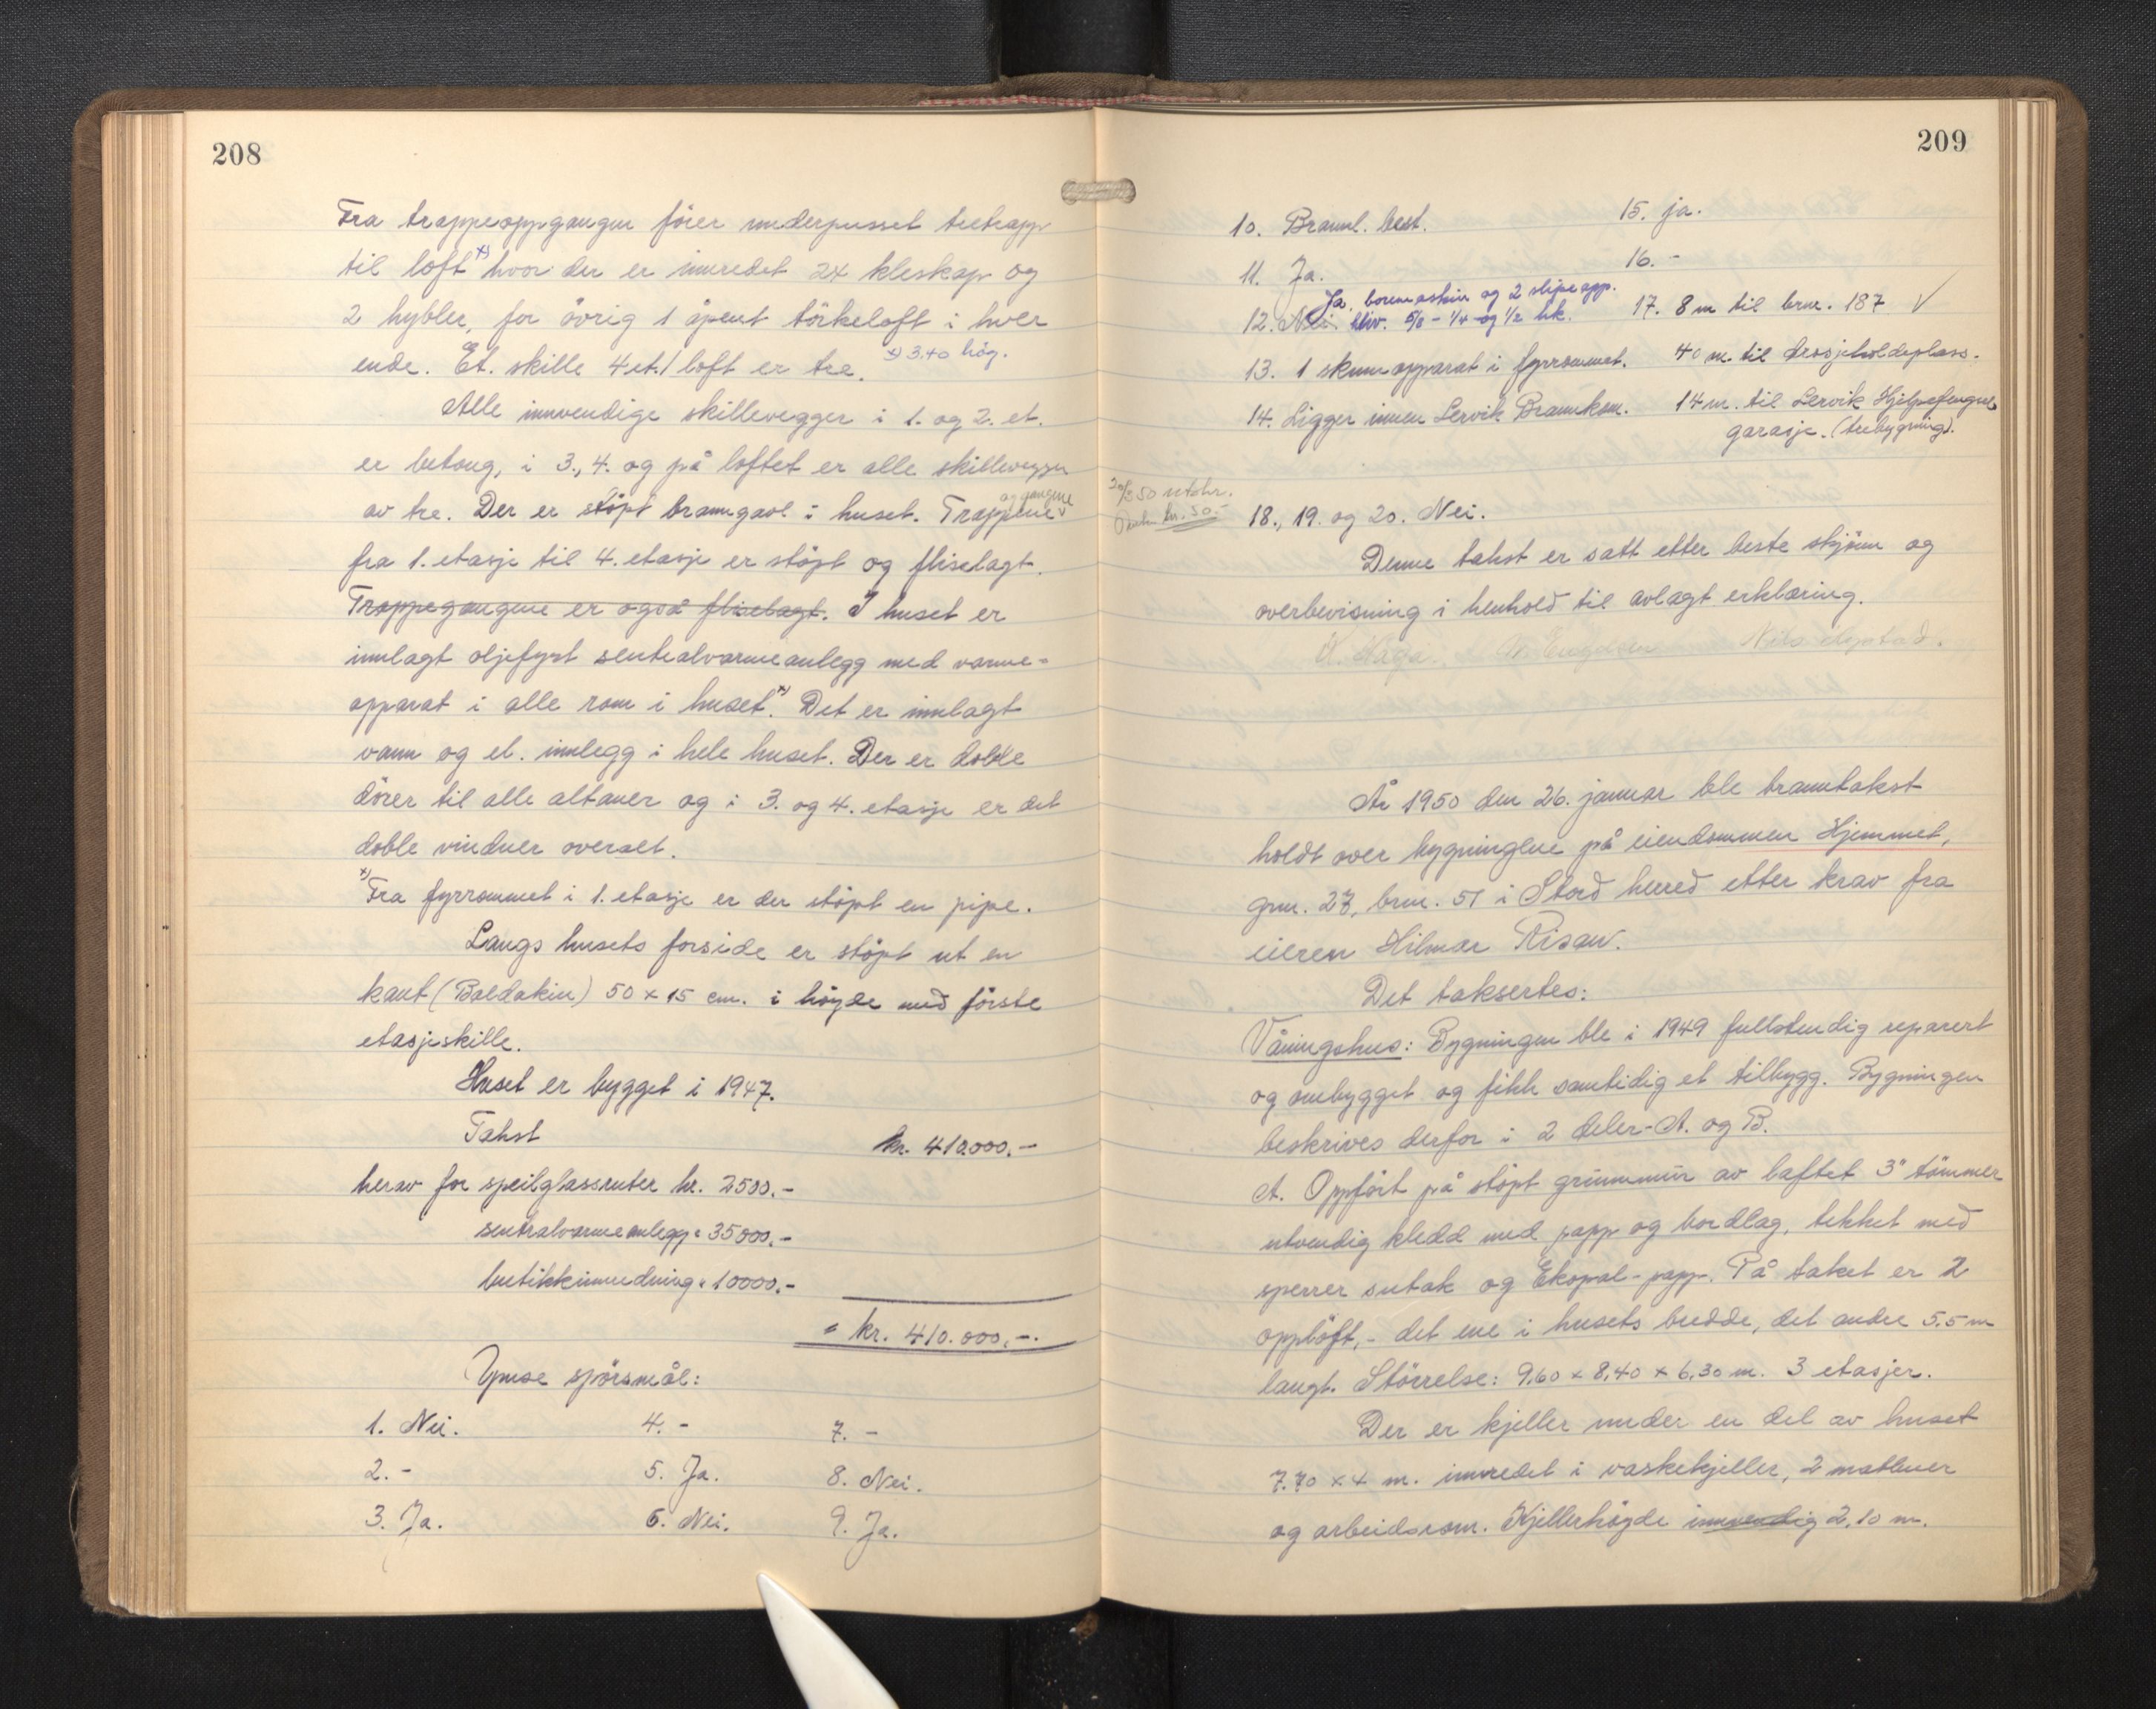 208
Fra trappeoppgangen förer underpusset tretrapp
til loft x) hvor der er innredet 24 kleskap og
2 hybler, for övrig 1 åpent törkeloft i hver
ende. Et. skille 4 et./loft er tre. x) 3.40 hög.
Alle innvendige skillevegger i 1. og 2. et.
er betong, i 3., 4. og på loftet er alle skillevegger
av tre. Der er stöpt branngavl i huset. Trappene og gangene
fra 1. etasje til 4. etasje er stöpt og fliselagt.
Trappegangene er også fliselagt. I huset er
innlagt oljefyrt sentralvarmeanlegg med varme=
apparat i alle rom i huset. x) Det er innlagt
vann og el. innlegg i hele huset. Der er doble
dörer til alle altaner og i 3. og 4. etasje er det
doble vinduer overalt.
x) Fra fyrrommet i 1. etasje er der stöpt en pipe.
Langs husets forside er stöpt ut en
kant (Baldakin) 50 x 15 cm. i höyde med förste
etasjeskille.
Huset er bygget i 1947.
Takst kr. 410.000.-
herav for speilglassruter kr. 2500.-
sentralvarmeanlegg " 35000.-
butikkinnredning " 10000.-
= kr. 410.000.-.
Ymse spörsmål:
1. Nei. 4. - 7. -
2. - 5. Ja. 8. Nei.
3. Ja. 6. Nei. 9. Ja.
209
10. Brannl. best. 15. ja.
11. Ja. 16. -
Ja, boremaskin og 2 slipeapp.
12. Nei. hhv. 5/8 - 1/4 og 1/2 hk. 17. 8 m til brnr. 187 ✓
13. 1 skumapparat i fyrrommet. 40 m. til drosjeholdeplass.
14. Ligger innen Lervik Brannkom. 14 m. til Lervik Hjelpefengsels
garasje. (trebygning).
50 utskr.
kr. 50.-
18., 19. og 20. Nei.
Denne takst er satt etter beste skjönn og
overbevisning i henhold til avlagt erklæring.
Nils
År 1950 den 26. januar ble branntakst
holdt over bygningene på eiendommen Hjemmet,
gnr. 27, brnr. 51 i Stord herred etter krav fra
eieren Hilmar Risan.
Det taksertes:
Våningshus: Bygningen ble i 1949 fullstendig reparert
og ombygget og fikk samtidig et tilbygg. Bygningen
beskrives derfor i 2 deler - A. og B.
A. Oppfört på stöpt grunnmur av laftet 3" tömmer
utvendig kledd med papp og bordlag, tekket med
sperrer sutak og Ekopal-papp. På taket er 2
opplöft, - det ene i husets bredde, det andre 5.5 m
langt. Störrelse: 9,60 x 8,40 x 6,30 m. 3 etasjer.
Der er kjeller under en del av huset
7.70 x 4 m. innredet i vaskekjeller, 2 matbuer
og arbeidsrom. Kjellerhöyde innvendig 2,10 m.